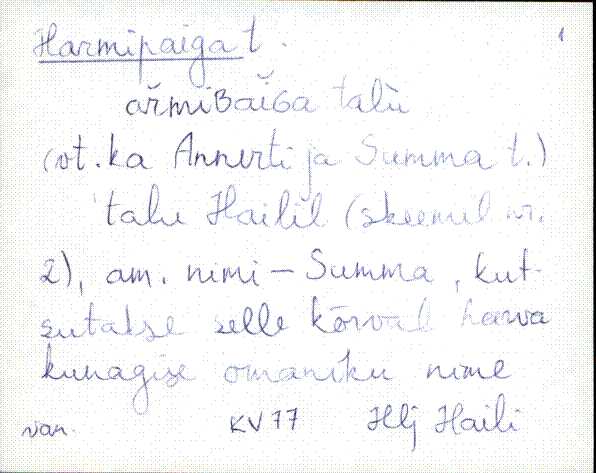 Harmipaiga t. 1
ar̆miBaiGa talù
(vt. ka Annerti ja Summa t.)
talu Hailil (skeemil nr.
2), am. nimi – Summa, kut-
sutakse selle kõrval harva
kunagise omaniku nime
van. KV77 Hlj Haili